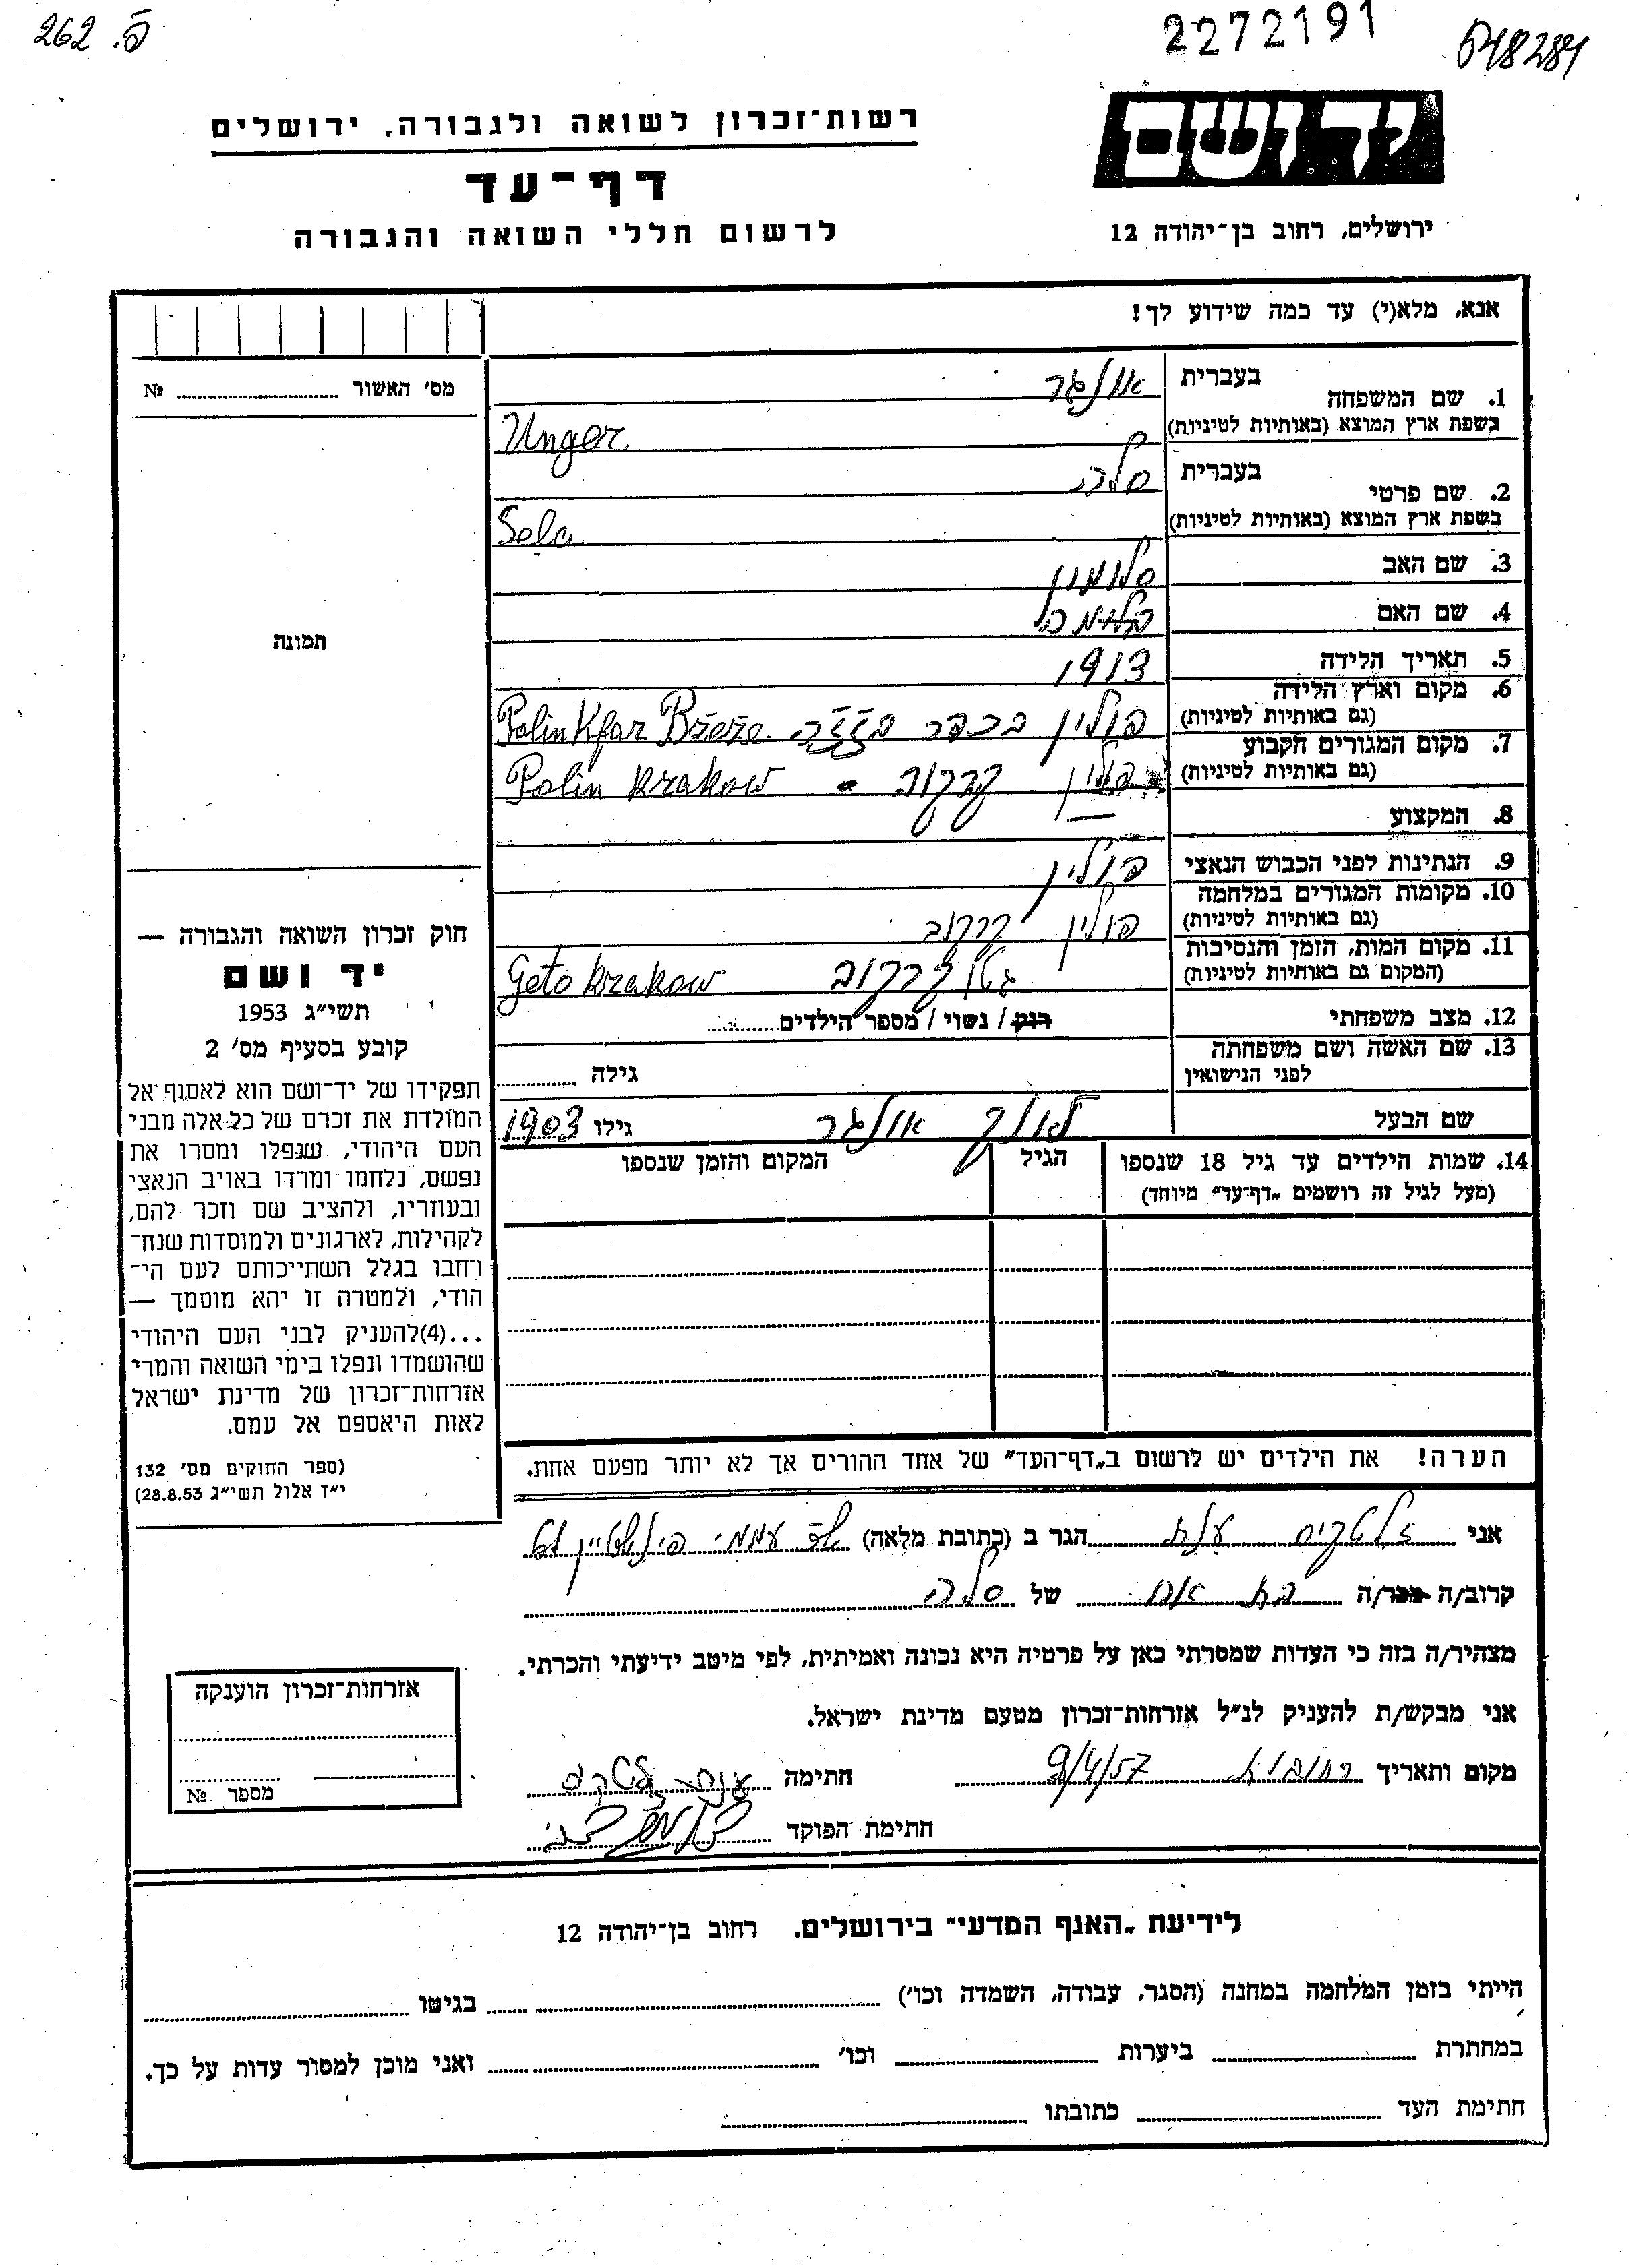 262 .פ
2272191
648284
יד ושם
ירושלים, רחוב בן־יהודה 12
רשות־זכרון לשואה ולגבורה, ירושלים
דף־עד
לרשום חללי השואה והגבורה
אנא, מלא(י) עד כמה שידוע לך!
מס' האשור № 
תמונה
1. שם המשפחה בעברית אונגר
בשפת ארץ המוצא (באותיות לטיניות) Unger
2. שם פרטי בעברית סלה
בשפת ארץ המוצא (באותיות לטיניות) Sela
3. שם האב סלומון
4. שם האם
5. תאריך הלידה 1913
6. מקום וארץ הלידה (גם באותיות לטיניות) פולין בכפר בז'ז'ה Polin Kfar Bžeže
7. מקום המגורים הקבוע (גם באותיות לטיניות) פולין קרקוב - Polin Krakow
8. המקצוע —
9. הנתינות לפני הכבוש הנאצי פולין
10. מקומות המגורים במלחמה (גם באותיות לטיניות) פולין קרקוב
11. מקום המות, הזמן והנסיבות (המקום גם באותיות לטיניות) גטו קרקוב Geto Krakow
12. מצב משפחתי רוק / נשוי / מספר הילדים
13. שם האשה ושם משפחתה לפני הנישואין גילה
שם הבעל אונגר גילו 1903
14. שמות הילדים עד גיל 18 שנספו הגיל המקום והזמן שנספו
(מעל לגיל זה רושמים „דף־עד" מיוחד)
הערה! את הילדים יש לרשום ב„דף־העד" של אחד ההורים אך לא יותר מפעם אחת.
חוק זכרון השואה והגבורה —
יד ושם
תשי״ג 1953
קובע בסעיף מס' 2
תפקידו של יד־ושם הוא לאסוף אל
המולדת את זכרם של כל אלה מבני
העם היהודי, שנפלו ומסרו את
נפשם, נלחמו ומרדו באויב הנאצי
ובעוזריו, ולהציב שם וזכר להם,
לקהילות, לארגונים ולמוסדות שנח־
רחבו בגלל השתייכותם לעם הי־
הודי, ולמטרה זו יהא מוסמך —
...(4)להעניק לבני העם היהודי
שהושמדו ונפלו בימי השואה והמרי
אזרחות־זכרון של מדינת ישראל
לאות היאספם אל עמם.
(ספר החוקים מס' 132
י״ז אלול תשי״ג 28.8.53)
אני הגר ב (כתובת מלאה)
קרוב/ה מכר/ה בת אח של סלה
מצהיר/ה בזה כי העדות שמסרתי כאן על פרטיה היא נכונה ואמיתית, לפי מיטב ידיעתי והכרתי.
אני מבקש/ת להעניק לנ״ל אזרחות־זכרון מטעם מדינת ישראל.
מקום ותאריך רחובות 9/4/57 חתימה
חתימת הפוקד
אזרחות־זכרון הוענקה
מספר №
לידיעת „האגף המדעי" בירושלים. רחוב בן־יהודה 12
הייתי בזמן המלחמה במחנה (הסגר, עבודה, השמדה וכו') בגיטו
במחתרת ביערות וכו' ואני מוכן למסור עדות על כך.
חתימת העד כתובתו